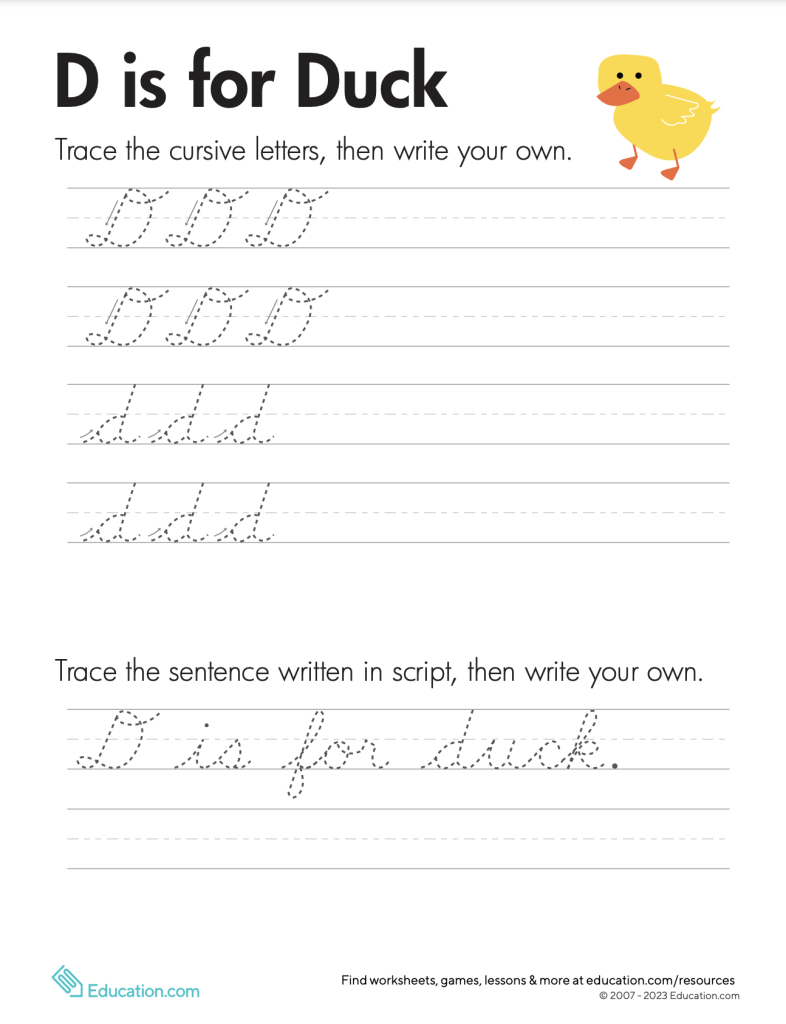 D is for Duck
Trace the cursive letters, then write your own.
D D D
D D D
d d d
d d d
Trace the sentence written in script, then write your own.
D is for duck.
Education.com
Find worksheets, games, lessons & more at education.com/resources
© 2007 - 2023 Education.com